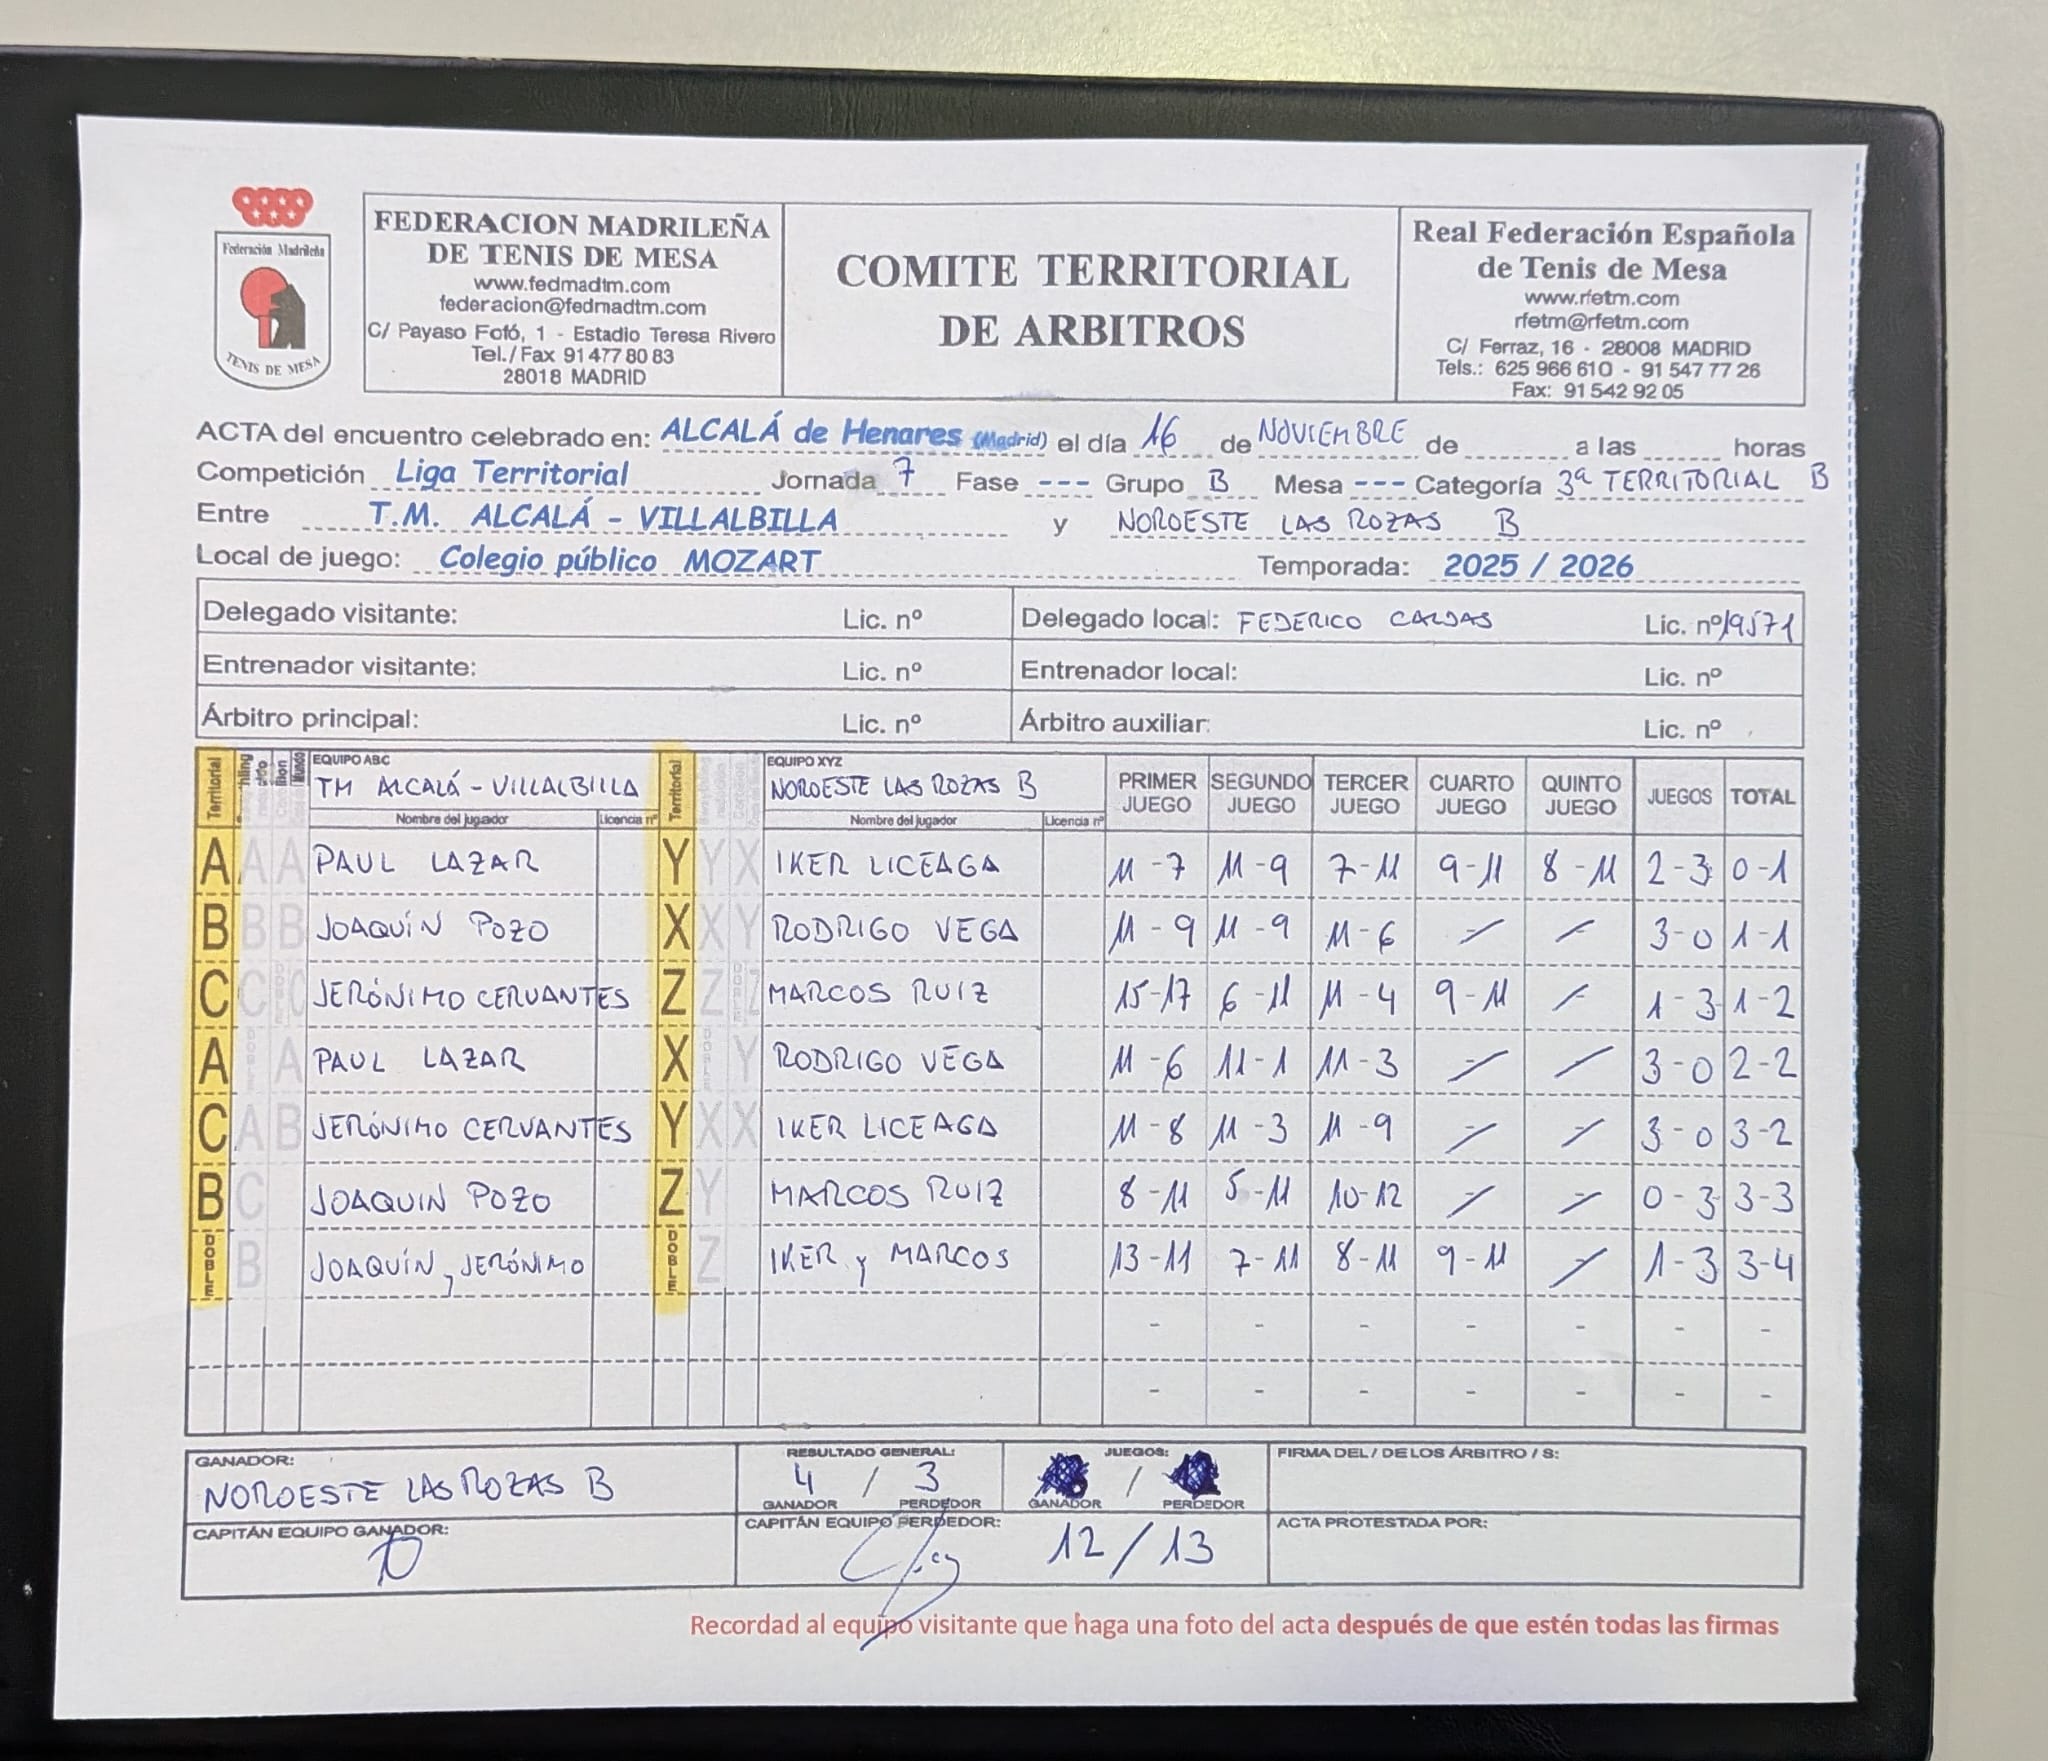 Federación Madrileña
TENIS DE MESA
FEDERACION MADRILEÑA
DE TENIS DE MESA
www.fedmadtm.com
federacion@fedmadtm.com
C/ Payaso Fofó, 1 - Estadio Teresa Rivero
Tel./Fax 91 477 80 83
28018 MADRID
COMITE TERRITORIAL
DE ARBITROS
Real Federación Española
de Tenis de Mesa
www.rfetm.com
rfetm@rfetm.com
C/ Ferraz, 16 - 28008 MADRID
Tels.: 625 966 610 - 91 547 77 26
Fax: 91 542 92 05
ACTA del encuentro celebrado en: ALCALÁ de Henares (Madrid) el día 16 de NOVIEMBRE de a las horas
Competición Liga Territorial Jornada 7 Fase --- Grupo B Mesa --- Categoría 3ª TERRITORIAL B
Entre T.M. ALCALÁ - VILLALBILLA y NOROESTE LAS ROZAS B
Local de juego: Colegio público MOZART Temporada: 2025 / 2026
Delegado visitante: Lic. nº Delegado local: FEDERICO CALDAS Lic. nº 19571
Entrenador visitante: Lic. nº Entrenador local: Lic. nº
Árbitro principal: Lic. nº Árbitro auxiliar: Lic. nº
Territorial EQUIPO ABC Territorial EQUIPO XYZ
TM ALCALÁ - VILLALBILLA NOROESTE LAS ROZAS B PRIMER JUEGO SEGUNDO JUEGO TERCER JUEGO CUARTO JUEGO QUINTO JUEGO JUEGOS TOTAL
Nombre del jugador Licencia nº Nombre del jugador Licencia nº
A A A PAUL LAZAR Y Y X IKER LICEAGA 11-7 11-9 7-11 9-11 8-11 2-3 0-1
B B B JOAQUÍN POZO X X Y RODRIGO VEGA 11-9 11-9 11-6 - - 3-0 1-1
C C C JERÓNIMO CERVANTES Z Z Z MARCOS RUIZ 15-17 6-11 11-4 9-11 - 1-3 1-2
A DOBLE A PAUL LAZAR X DOBLE Y RODRIGO VEGA 11-6 11-1 11-3 - - 3-0 2-2
C A B JERÓNIMO CERVANTES Y X X IKER LICEAGA 11-8 11-3 11-9 - - 3-0 3-2
B C JOAQUIN POZO Z Y MARCOS RUIZ 8-11 5-11 10-12 - - 0-3 3-3
DOBLE B JOAQUÍN y JERÓNIMO DOBLE Z IKER y MARCOS 13-11 7-11 8-11 9-11 - 1-3 3-4
- - - - - - -
- - - - - - -
GANADOR: RESULTADO GENERAL: JUEGOS: FIRMA DEL / DE LOS ÁRBITRO / S:
NOROESTE LAS ROZAS B 4 / 3 /
GANADOR PERDEDOR GANADOR PERDEDOR
CAPITÁN EQUIPO GANADOR: CAPITÁN EQUIPO PERDEDOR: 12 / 13 ACTA PROTESTADA POR:
Recordad al equipo visitante que haga una foto del acta después de que estén todas las firmas